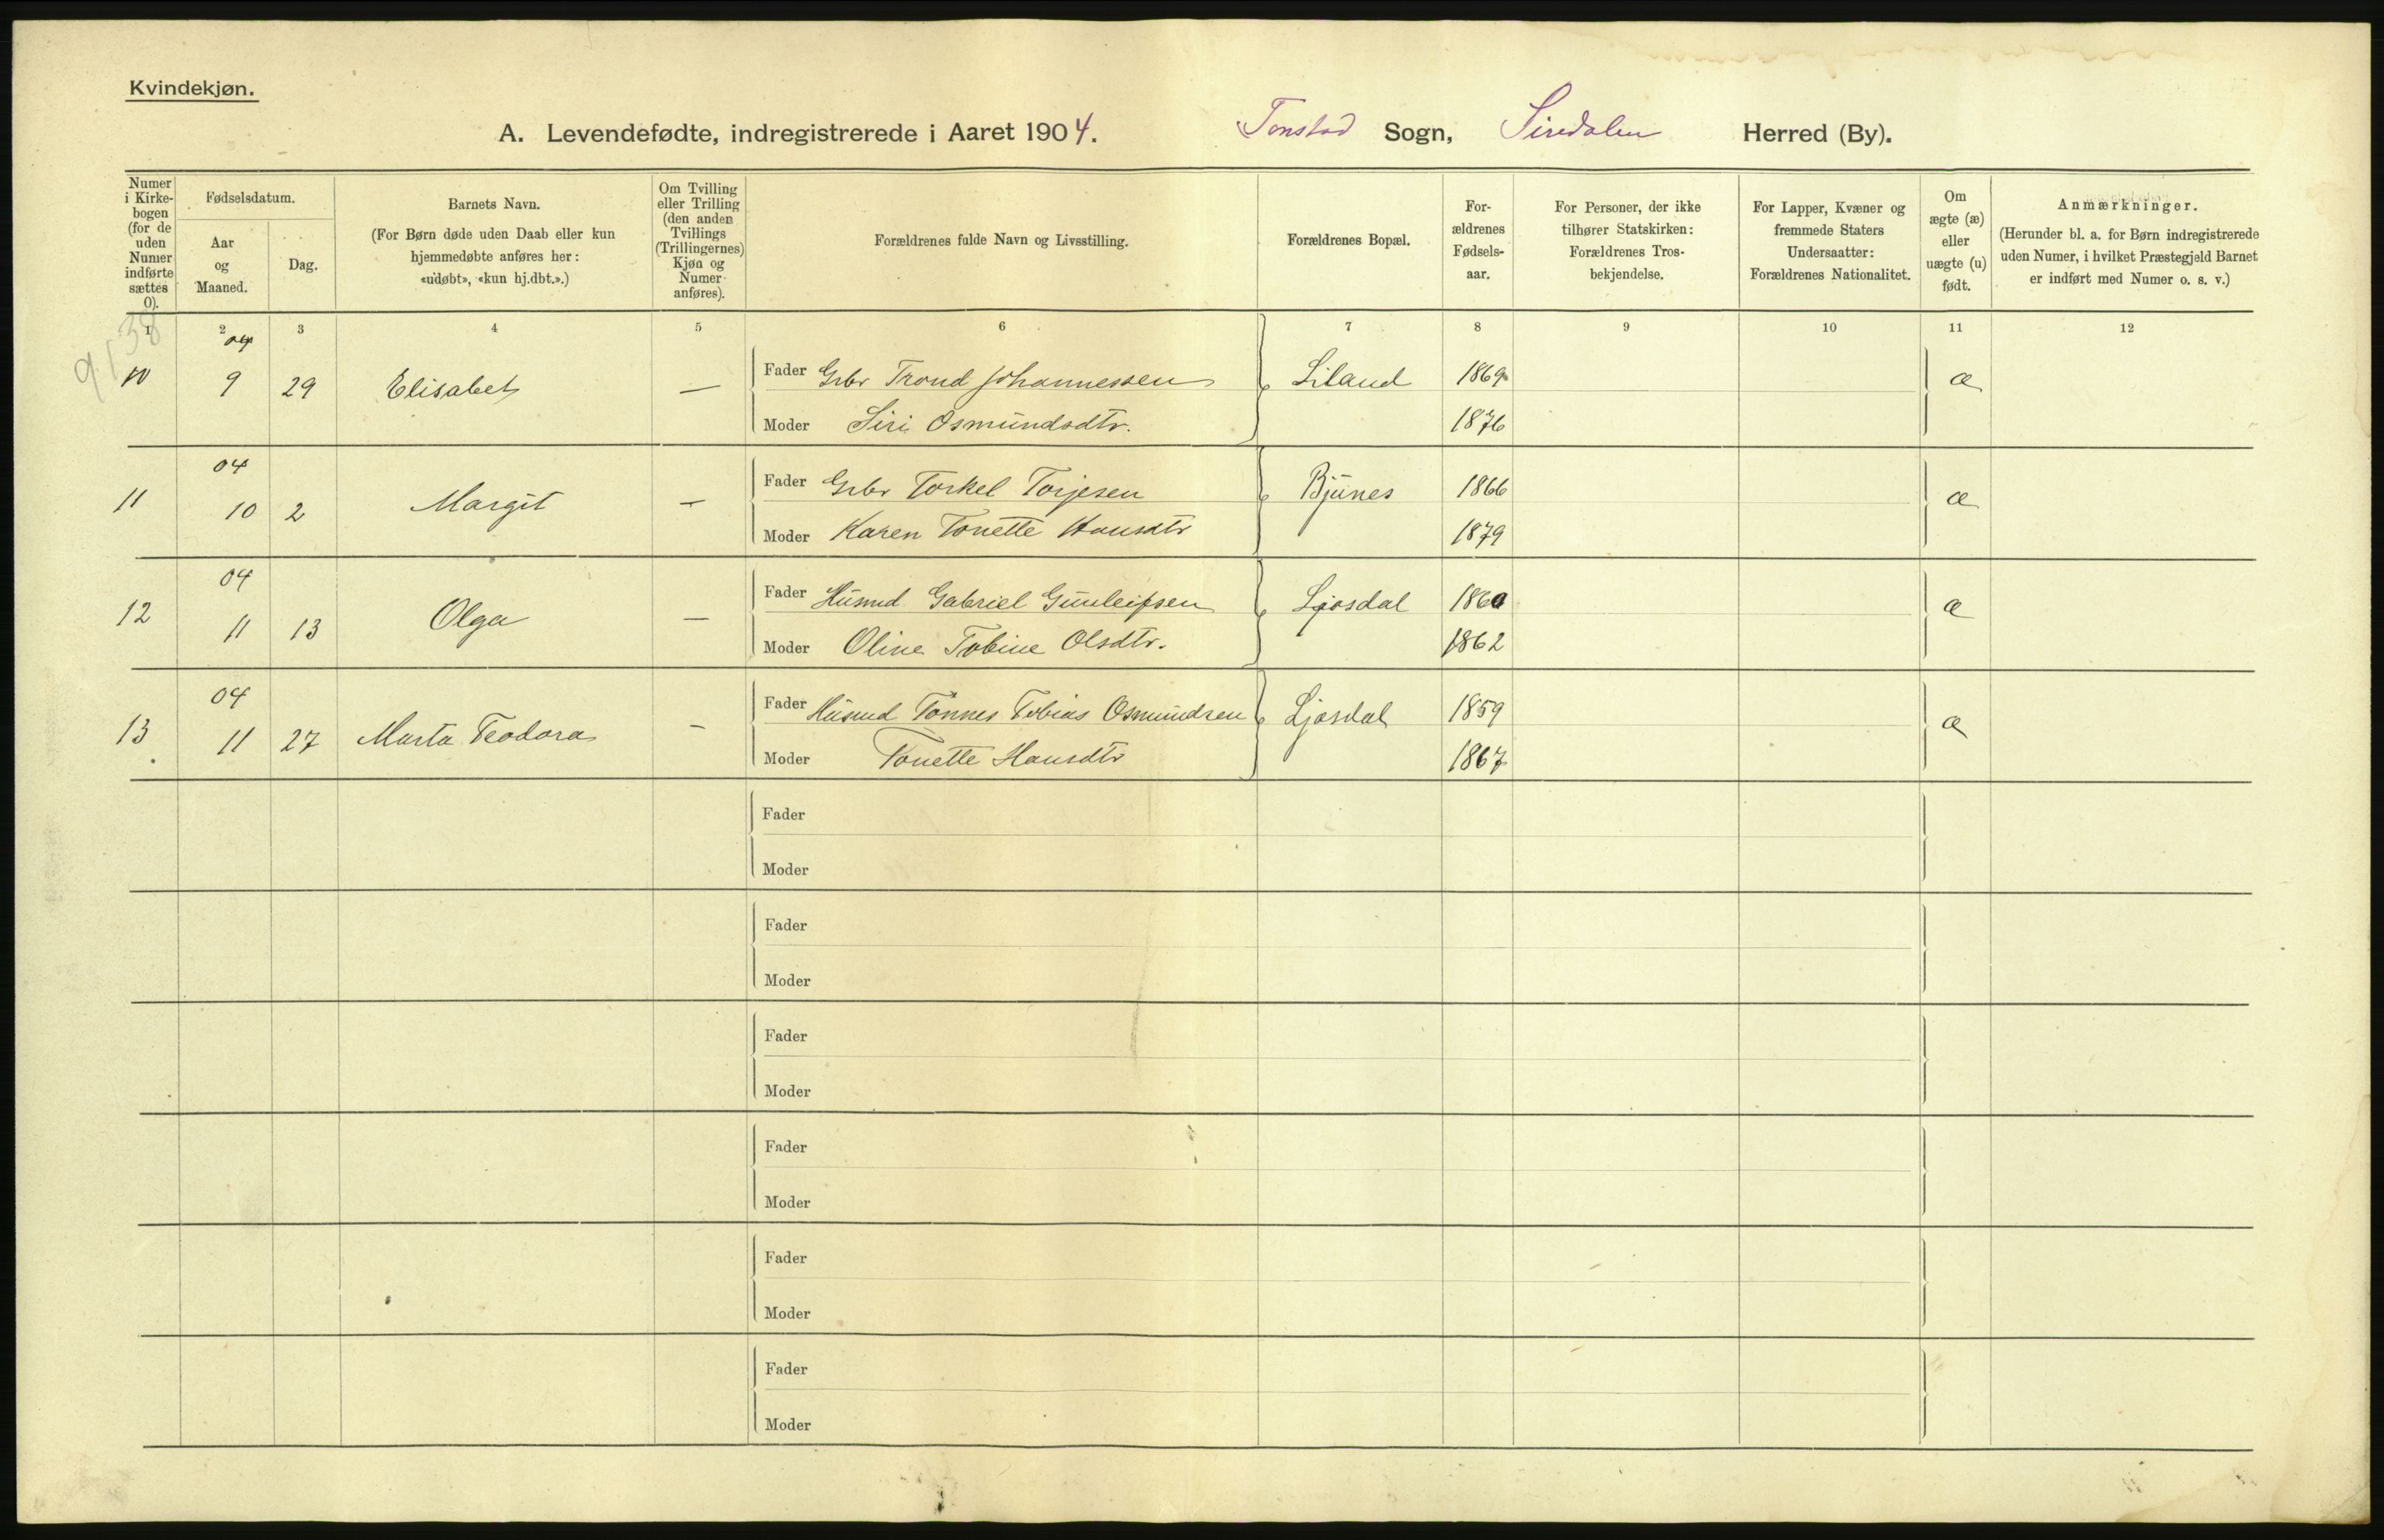 Kvindekjøn.
A. Levendefødte, indregistrerede i Aaret 1904. Tonstad Sogn, Siredalen Herred (By).
Numer i Kirkebogen (for de uden Numer indførte sættes 0).
Fødselsdatum.
Aar og Maaned.
Dag.
Barnets Navn.
(For Børn døde uden Daab eller kun hjemmedøbte anføres her: «udøbt», «kun hj.dbt.».)
Om Tvilling eller Trilling (den anden Tvillings (Trillingernes) Kjøn og Numer anføres).
Forældrenes fulde Navn og Livsstilling.
Forældrenes Bopæl.
Forældrenes Fødselsaar.
For Personer, der ikke tilhører Statskirken: Forældrenes Trosbekjendelse.
For Lapper, Kvæner og fremmede Staters Undersaatter: Forældrenes Nationalitet.
Om ægte (æ) eller uægte (u) født.
Anmærkninger.
(Herunder bl. a. for Børn indregistrerede uden Numer, i hvilket Præstegjeld Barnet er indført med Numer o. s. v.)
1 2 3 4 5 6 7 8 9 10 11 12
38
91
04
10 9 29 Elisabet — Fader Gbr Trond Johannessen Liland 1869 æ
Moder Siri Osmundsdtr. 1876
04
11 10 2 Margit — Fader Gbr Torkel Torjesen Bjunes 1866 æ
Moder Karen Tonette Hansdtr 1879
04
12 11 13 Olga — Fader Husmd Gabriel Gunleifsen Ljosdal 1860 æ
Moder Oline Tobine Olsdtr. 1862
04
13 11 27 Marta Teodora — Fader Husmd Tønnes Tobias Osmundsen Ljosdal 1859 æ
Moder Tonette Hansdtr 1867
Fader
Moder
Fader
Moder
Fader
Moder
Fader
Moder
Fader
Moder
Fader
Moder